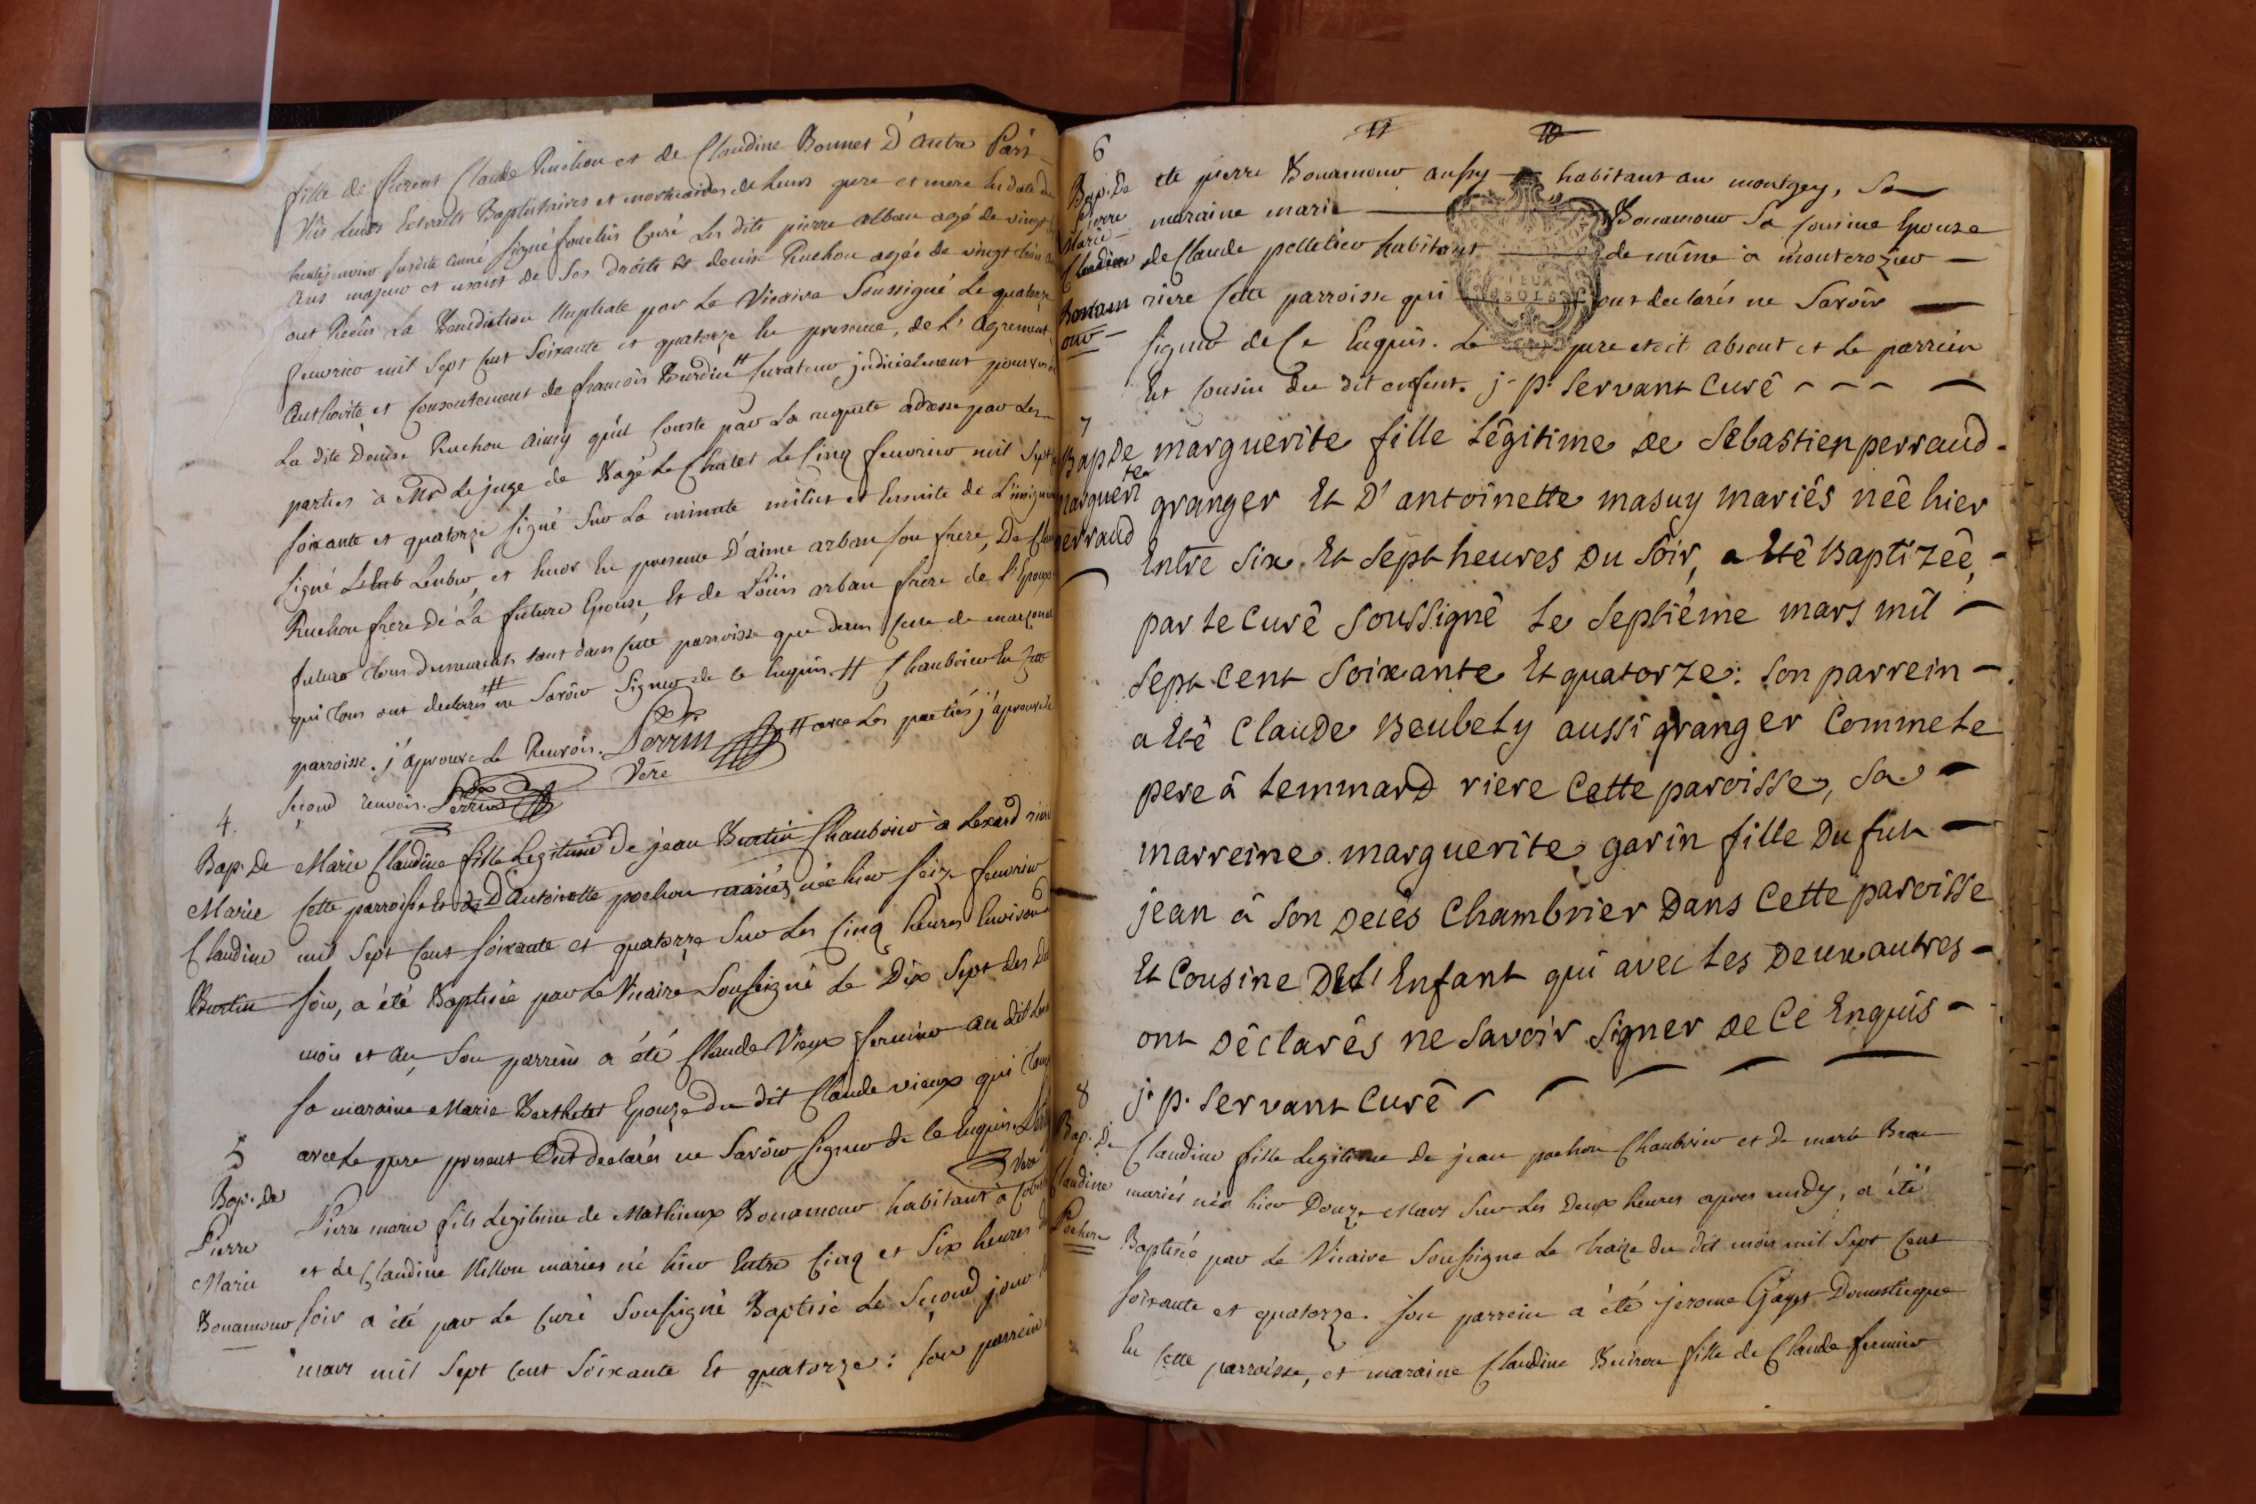 fille de Claude Ruchon et de Claudine Bonnet D'autre Part
Vûs Leurs Extraits Baptistaires et mortuaires de Leurs pere et mere En date du
susdite année signé Curé Les dits pierre alban agé de vingt
Ans majeur et usant de Ses Droits et denise Ruchon agée de vingt trois
ont Recûs La Benediction Nuptiale par Le Vicaire Soussigné Le quatorze
feuvrier mil Sept Cent Soixante et quatorze En presence, de L'Agrement
Authorité et Consentement de francois Burdin Curateur judicialement pourvu à
La dite Denise Ruchon Ainsy qu'il Conste par La requete adresse par Les
parties à Mr Le juge de Bagé Le Chatel Le Cinq feuvrier mil Sept
soixante et quatorze signé Sur La minute et Ensuite de
signé et En presence D'aimé arban son frere, De
Ruchon frere dé La future Epouse, Et de Loüis arban frere de L'Epoux
futur Tous demeurants tant dans Cette parroisse que dans Celle de
qui Tous ont declarés ne Savoir Signer de Ce Enquis # Chambrier En
parroisse. j'approuve Le Renvoi. Perrin # avec Les parties j'approuve Le
Vere
second renvoi. Perrin
4.
Bap. De Marie Claudine fille Legitime de jean Burtin Chambrier à Lexard riere
Marie Cette parroisse Et de D'Antoinette pochon mariés, née hier seize feuvrier
Claudine mil Sept Cent soixante et quatorze Sur Les Cinq heures Environ du
Burtin soir, a été Baptisée par Le Vicaire Soussigné Le Dix Sept des dits
mois et an, Son parrein a été Claude Vieux fermier au dit
sa maraine Marie Berthelet Epouze du dit Claude vieux qui Tous
avec Le pere present Ont declarés ne Savoir signer de Ce Enquis.
Vere
5
Bap. De
Pierre Pierre marie fils Legitime de Mathieux Bonamour habitant à
Marie et de Claudine Millon mariés né hier Entre Cinq et Six heures du
Bonamour soir a été par Le Curé Soussigné Baptisé Le Second jour de
mars mil Sept Cent Soixante Et quatorze : Son parrein
11 10
6
Bap. De été pierre Bonamour aussy habitant au montgey, Sa
Pierre maraine marie Bonamour Sa Cousine Epouze
Marie de Claude pelletier habitant de même à montcrozier
Claudine riere Cette parroisse qui ont declarés ne Savoir
Bonam
our signer de Ce Enquis. Le pere etoit absent et Le parrein
Est Cousin du dit enfant. j. p. Servant Curé
7
Bap De marguerite fille Légitime de Sébastien perraud
Margueri
tte granger Et D'antoinette masuy mariés née hier
perraud Entre Six Et Sept heures Du Soir, a Eté Baptizée,
par Le Curé Soussigné Le Septiéme mars mil
Sept Cent Soixante Et quatorze: Son parrein
a Eté Claude Beubety aussi granger Comme Le
pere à Lemmard riere Cette paroisse, Sa
marreine marguerite garin fille Du fut
jean à Son Décés Chambrier Dans Cette paroisse
Et Cousine De L'Enfant qui avec Les Deux autres
ont Déclarés ne Savoir Signer de Ce Enquis
j. p. Servant Curé
8
Bap. De Claudine fille Legitime de jean pochon Chambrier et de marie Brau
Claudine mariés née hier Douze Mars Sur Les Deux heures apres midy, a été
Pochon Baptisée par Le Vicaire Soussigné Le traize du dit mois mil Sept Cent
soixante et quatorze. Son parrein a été jerome Gayet Domestique
En Cette parroisse, et maraine Claudine Buiron fille de Claude fermier